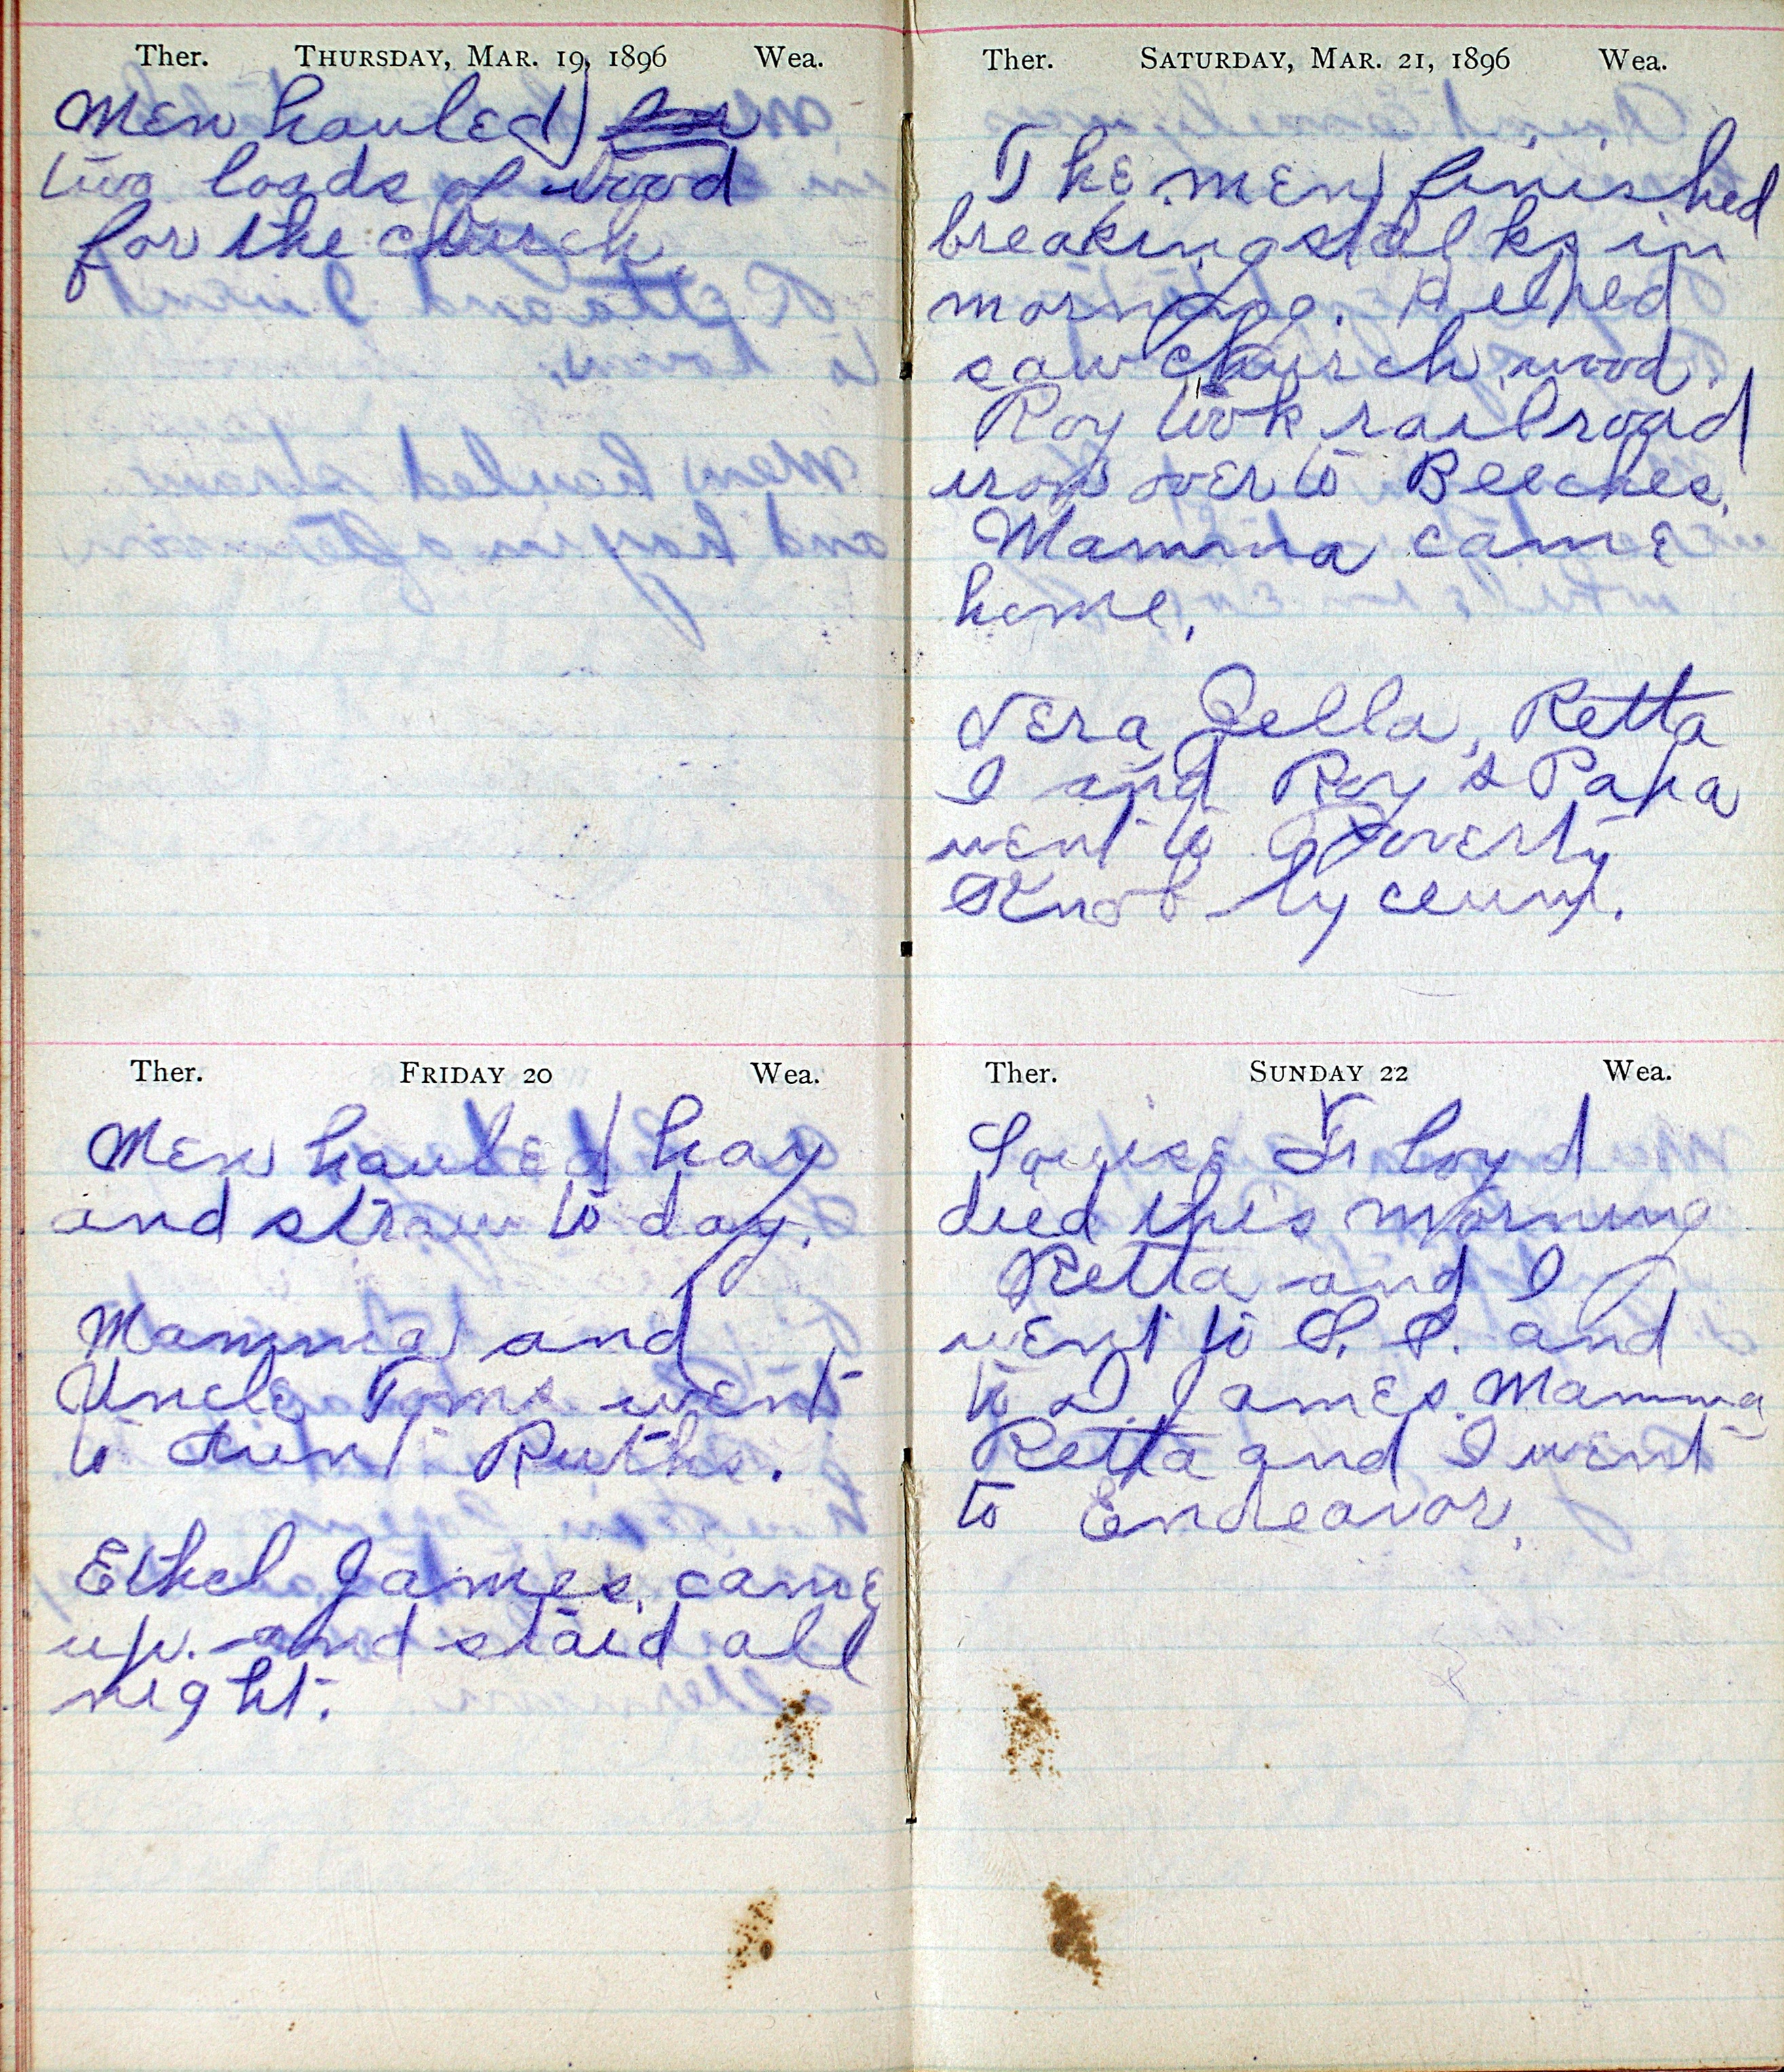 Ther. THURSDAY, MAR. 19, 1896 Wea.
Men hauled
two loads of wood
for the church.
Ther. FRIDAY 20 Wea.
Men hauled hay
and straw to day.
Mamma and
Uncle Toms went
to Aunt Ruths.
Ethel James, came
up. and staid all
night.
Ther. SATURDAY, MAR. 21, 1896 Wea.
The men finished
breaking stalks in
morning. Helped
saw church wood.
Roy took railroad
iron over to Beeches.
Mamma came
home.
Vera, Zella, Retta
I and Roy & Papa
went to Poverty
Knob lyceum.
Ther. SUNDAY 22 Wea.
Louise Floyd
died this morning
Retta and I
went to S. S. and
to D. James. Mamma
Retta and I went
to Endeavor.